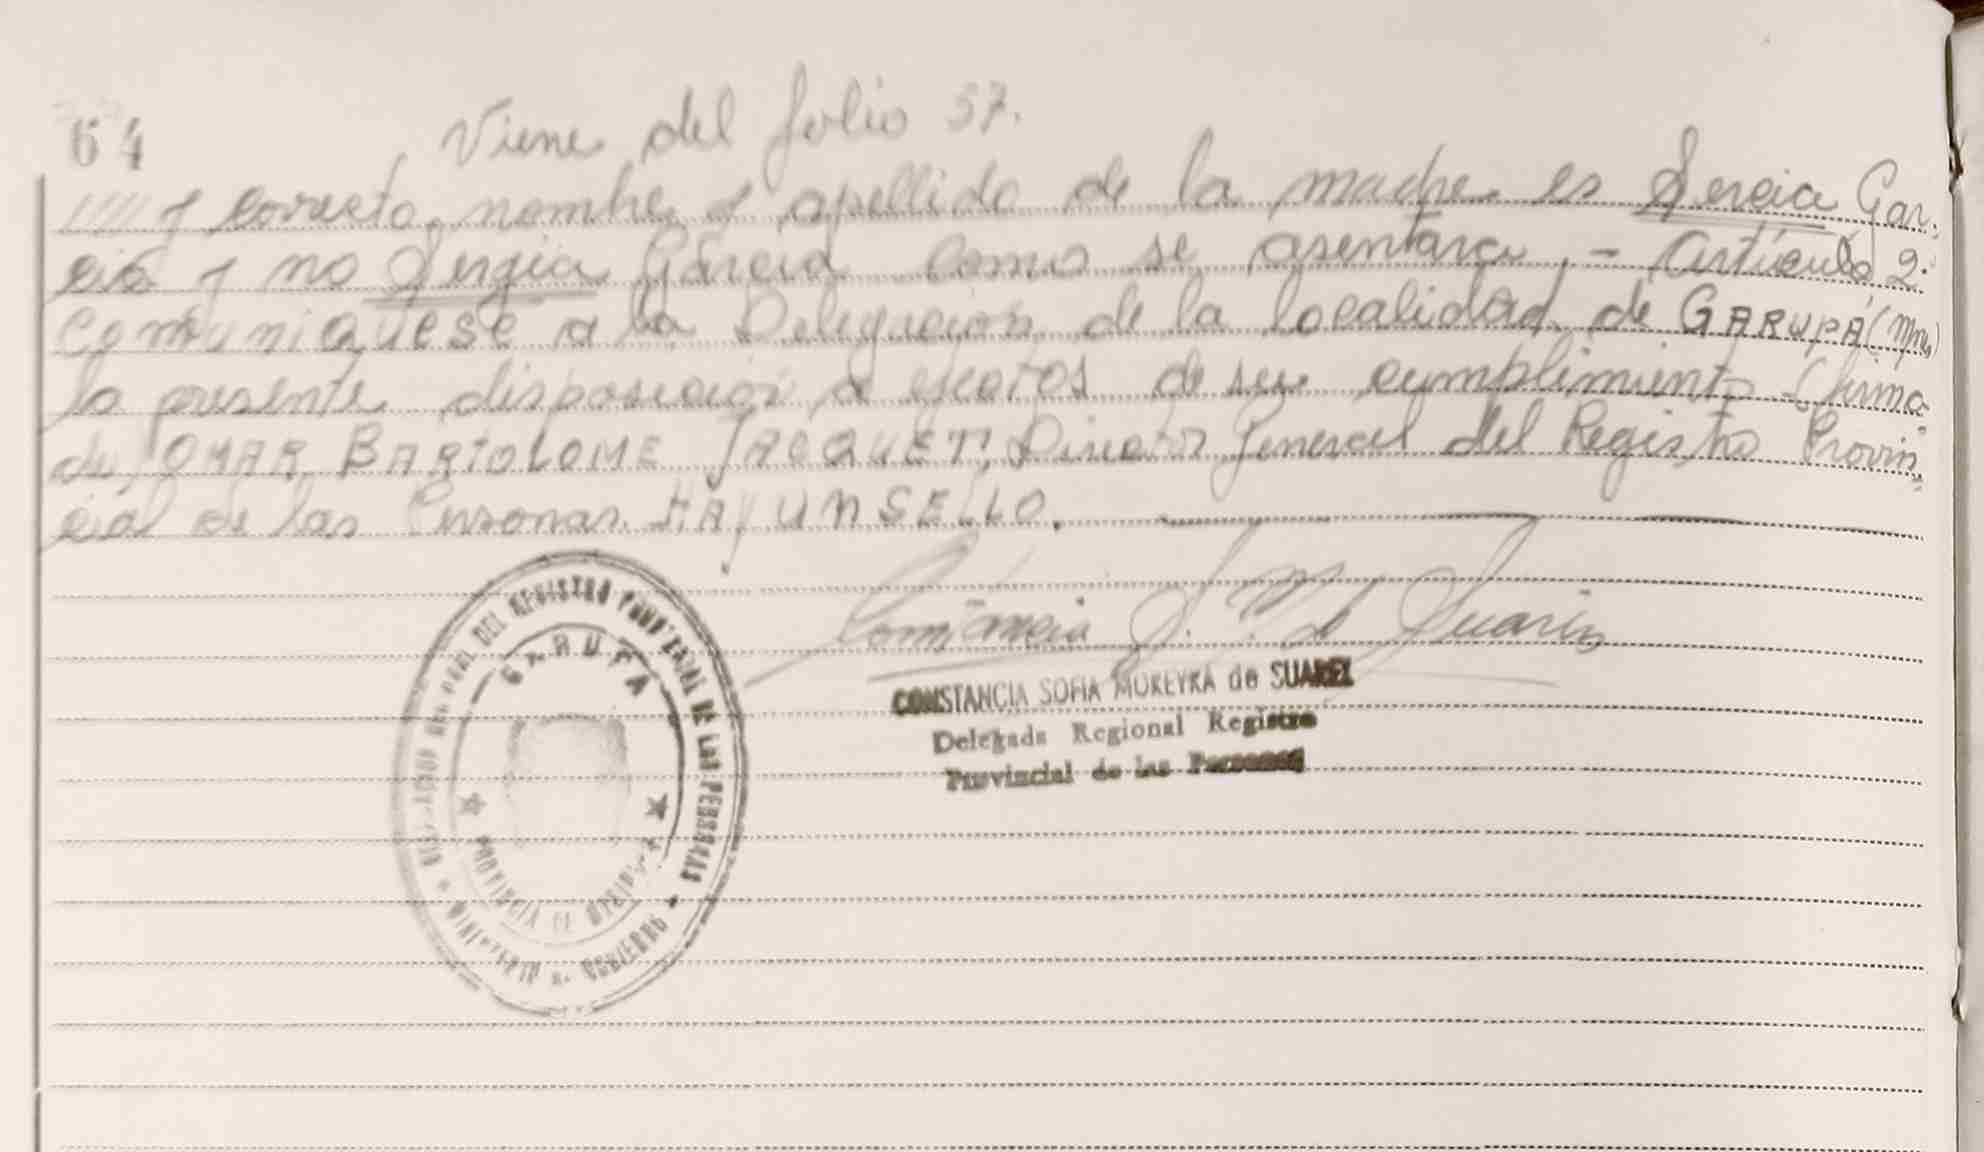 64
Viene del folio 57.
///// y correcto nombre y apellido de la madre es Sereia Gar-
cia y no Sergia Garcia como se asentara. - Artículo 2º
Comuniquese a la Delegación de la localidad de GARUPÁ (Mnes)
la presente disposicion a efectos de su cumplimiento - (firma
do) OMAR BARTOLOME JACQUET, Director General del Registro Provin
cial de las Personas. HAY UN SELLO.
Constancia S. M. de Suarez
CONSTANCIA SOFIA MOREYRA de SUAREZ
Delegada Regional Registro
Provincial de las Personas
DEL REGISTRO PROVINCIAL DE LAS PERSONAS
GARUPA
PROVINCIA DE MISIONES
MINISTERIO DE GOBIERNO